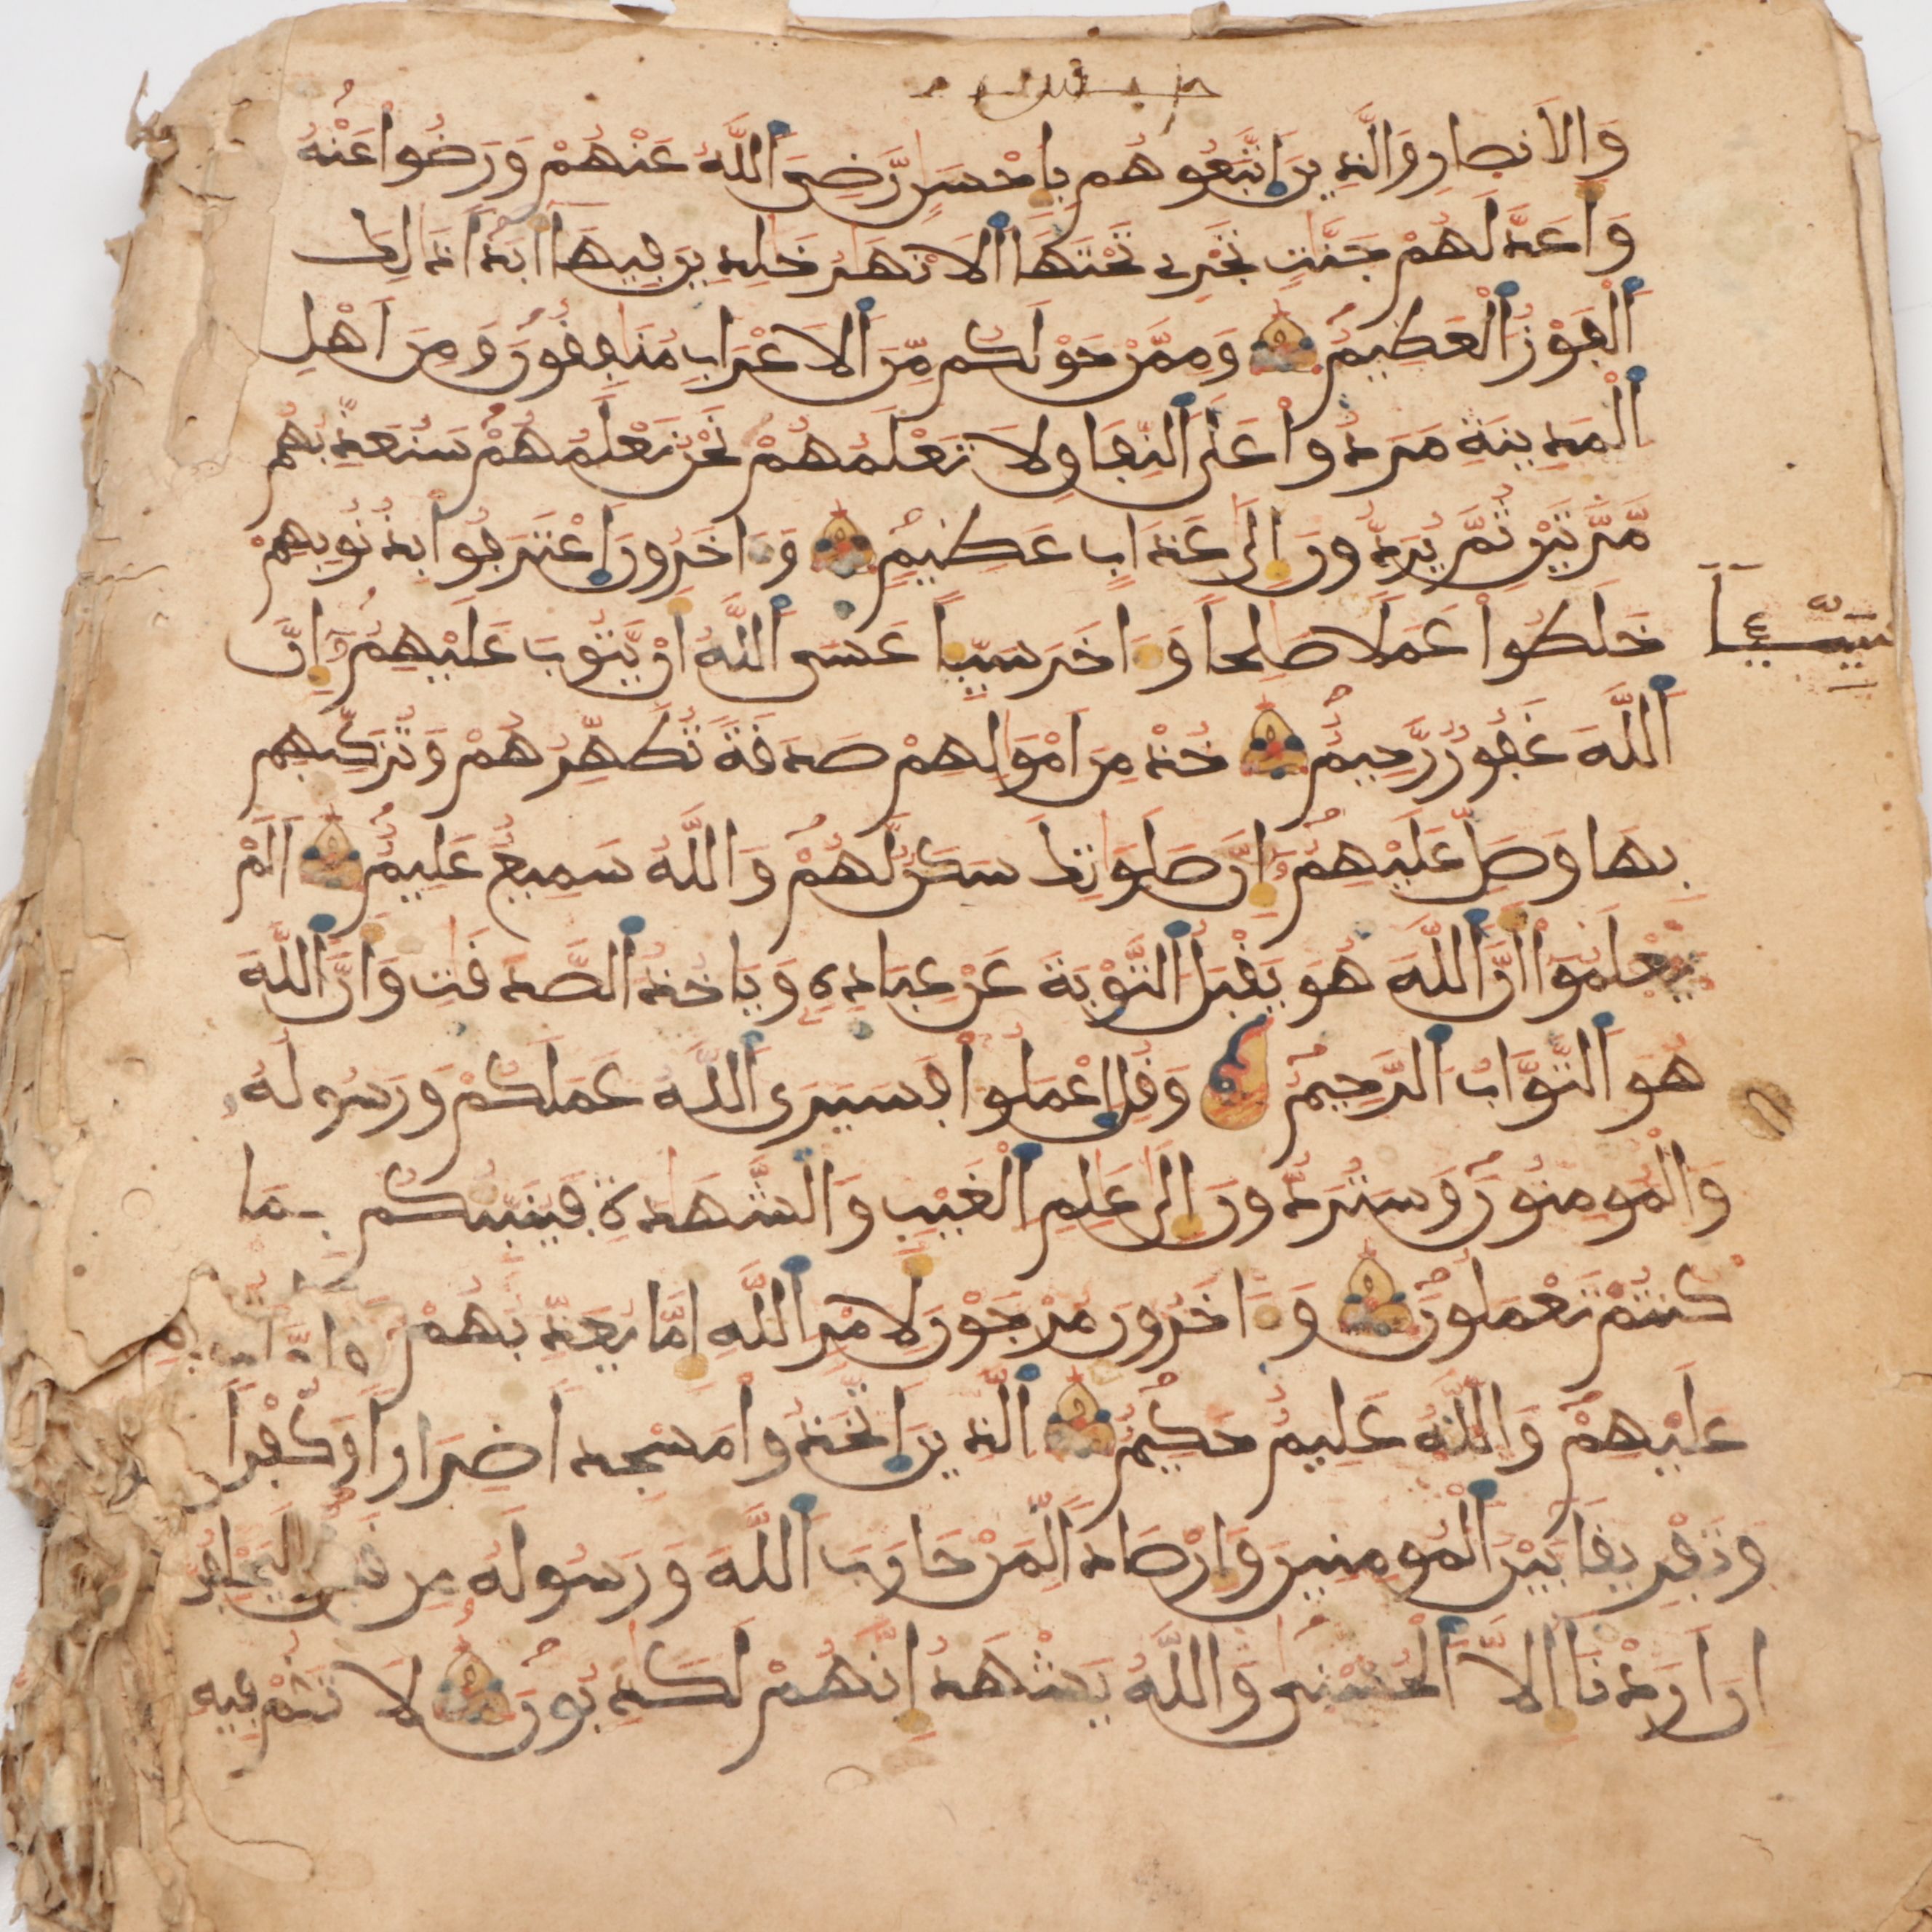 وَالَانصارِ وَالذِينَ اَتَّبَعُوهُم بِإِحْسَٰنٍ رَّضِيَ اَللَّهُ عَنْهُمْ وَرَضُواْ عَنْهُ
وَأَعَدَّ لَهُمْ جَنَّٰتٍ تَجْرِي تَحْتَهَا اَلَانْهَٰرُ خَٰلِدِينَ فِيهَا أَبَداً ذَٰلِكَ
اَلْفَوْزُ اَلْعَظِيمُ وَمِمَّنْ حَوْلَكُم مِّنَ اَلَاعْرَابِ مُنَٰفِقُونَ وَمِنَ اَهْلِ
اَلْمَدِينَةِ مَرَدُواْ عَلَى اَلنِّفَاقِ لَا تَعْلَمُهُمْ نَحْنُ نَعْلَمُهُمْ سَنُعَذِّبُهُم
مَّرَّتَيْنِ ثُمَّ يُرَدُّونَ إِلَىٰ عَذَابٍ عَظِيمٍ وَءَاخَرُونَ اَعْتَرَفُواْ بِذُنُوبِهِمْ
خَلَطُواْ عَمَلًا صَٰلِحاً وَءَاخَرَ سَيِّئاً عَسَى اَللَّهُ أَنْ يَّتُوبَ عَلَيْهِمُ إِنَّ
سَيِّئاً
اَللَّهَ غَفُورٌ رَّحِيمٌ خُذْ مِنَ اَمْوَٰلِهِمْ صَدَقَةً تُطَهِّرُهُمْ وَتُزَكِّيهِم
بِهَا وَصَلِّ عَلَيْهِمُ إِنَّ صَلَوَٰتِكَ سَكَنٌ لَّهُمْ وَاللَّهُ سَمِيعٌ عَلِيمٌ اَلَمْ
يَعْلَمُواْ أَنَّ اَللَّهَ هُوَ يَقْبَلُ اَلتَّوْبَةَ عَنْ عِبَادِهِ وَيَاخُذُ اَلصَّدَقَٰتِ وَأَنَّ اَللَّهَ
هُوَ اَلتَّوَّابُ اَلرَّحِيمُ وَقُلِ اِعْمَلُواْ فَسَيَرَى اَللَّهُ عَمَلَكُمْ وَرَسُولُهُ
وَالْمُومِنُونَ وَسَتُرَدُّونَ إِلَىٰ عَٰلِمِ اَلْغَيْبِ وَالشَّهَٰدَةِ فَيُنَبِّئُكُم بِمَا
كُنتُمْ تَعْمَلُونَ وَءَاخَرُونَ مُرْجَوْنَ لِأَمْرِ اَللَّهِ إِمَّا يُعَذِّبُهُمْ وَإِمَّا
عَلَيْهِمْ وَاللَّهُ عَلِيمٌ حَكِيمٌ اَلذِينَ اَتَّخَذُواْ مَسْجِداً ضِرَاراً وَكُفْراً
وَتَفْرِيقاً بَيْنَ اَلْمُومِنِينَ وَإِرْصَاداً لِّمَنْ حَارَبَ اَللَّهَ وَرَسُولَهُ مِن قَبْلُ وَلَيَحْلِفُنَّ
إِنَ اَرَدْنَا إِلَّا اَلْحُسْنَىٰ وَاللَّهُ يَشْهَدُ إِنَّهُمْ لَكَٰذِبُونَ لَا تَقُمْ فِيهِ